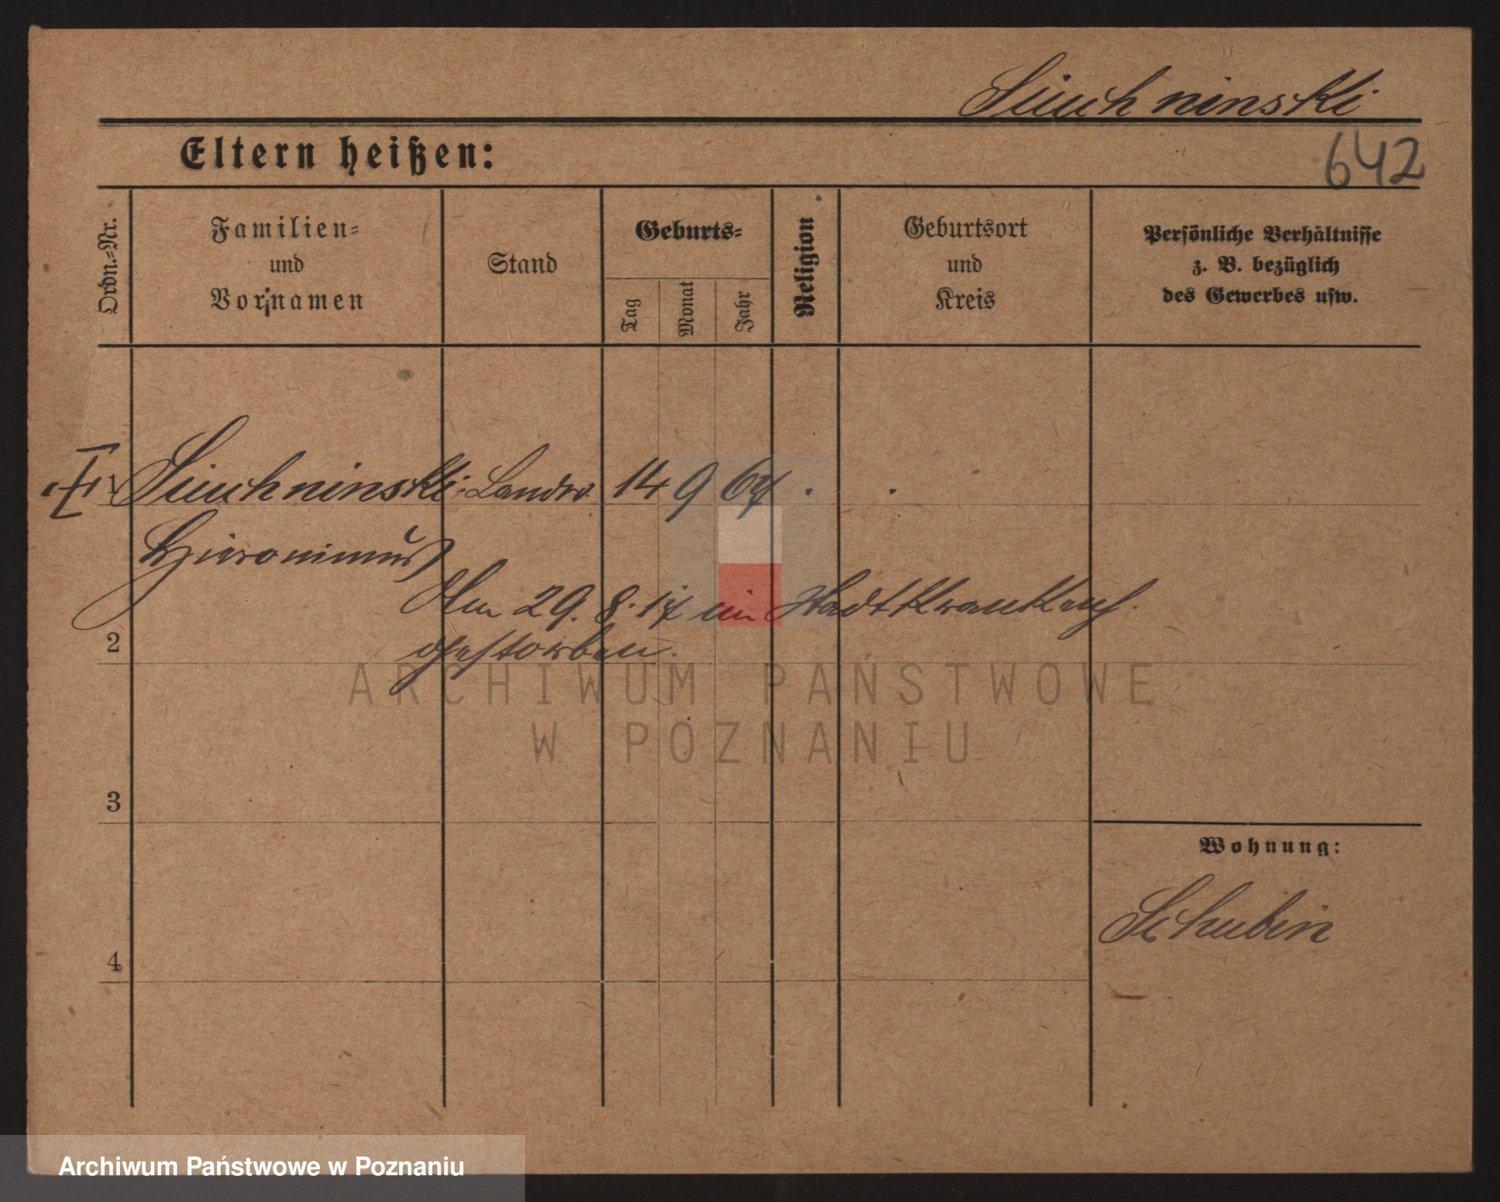 Siuchninski
Eltern heißen:
642
Ordn.-Nr.
Familien-
und
Vornamen
Stand
Geburts-
Tag
Monat
Jahr
Religion
Geburtsort
und
Kreis
Persönliche Verhältnisse
z. B. bezüglich
des Gewerbes usw.
Siuchninski Landw. 14 9 64
Hieronimus
Am 29. 8. 17 im Stadtkrankenh.
gestorben.
2
3
4
Wohnung:
Schubin
ARCHIWUM PAŃSTWOWE
W POZNANIU
Archiwum Państwowe w Poznaniu